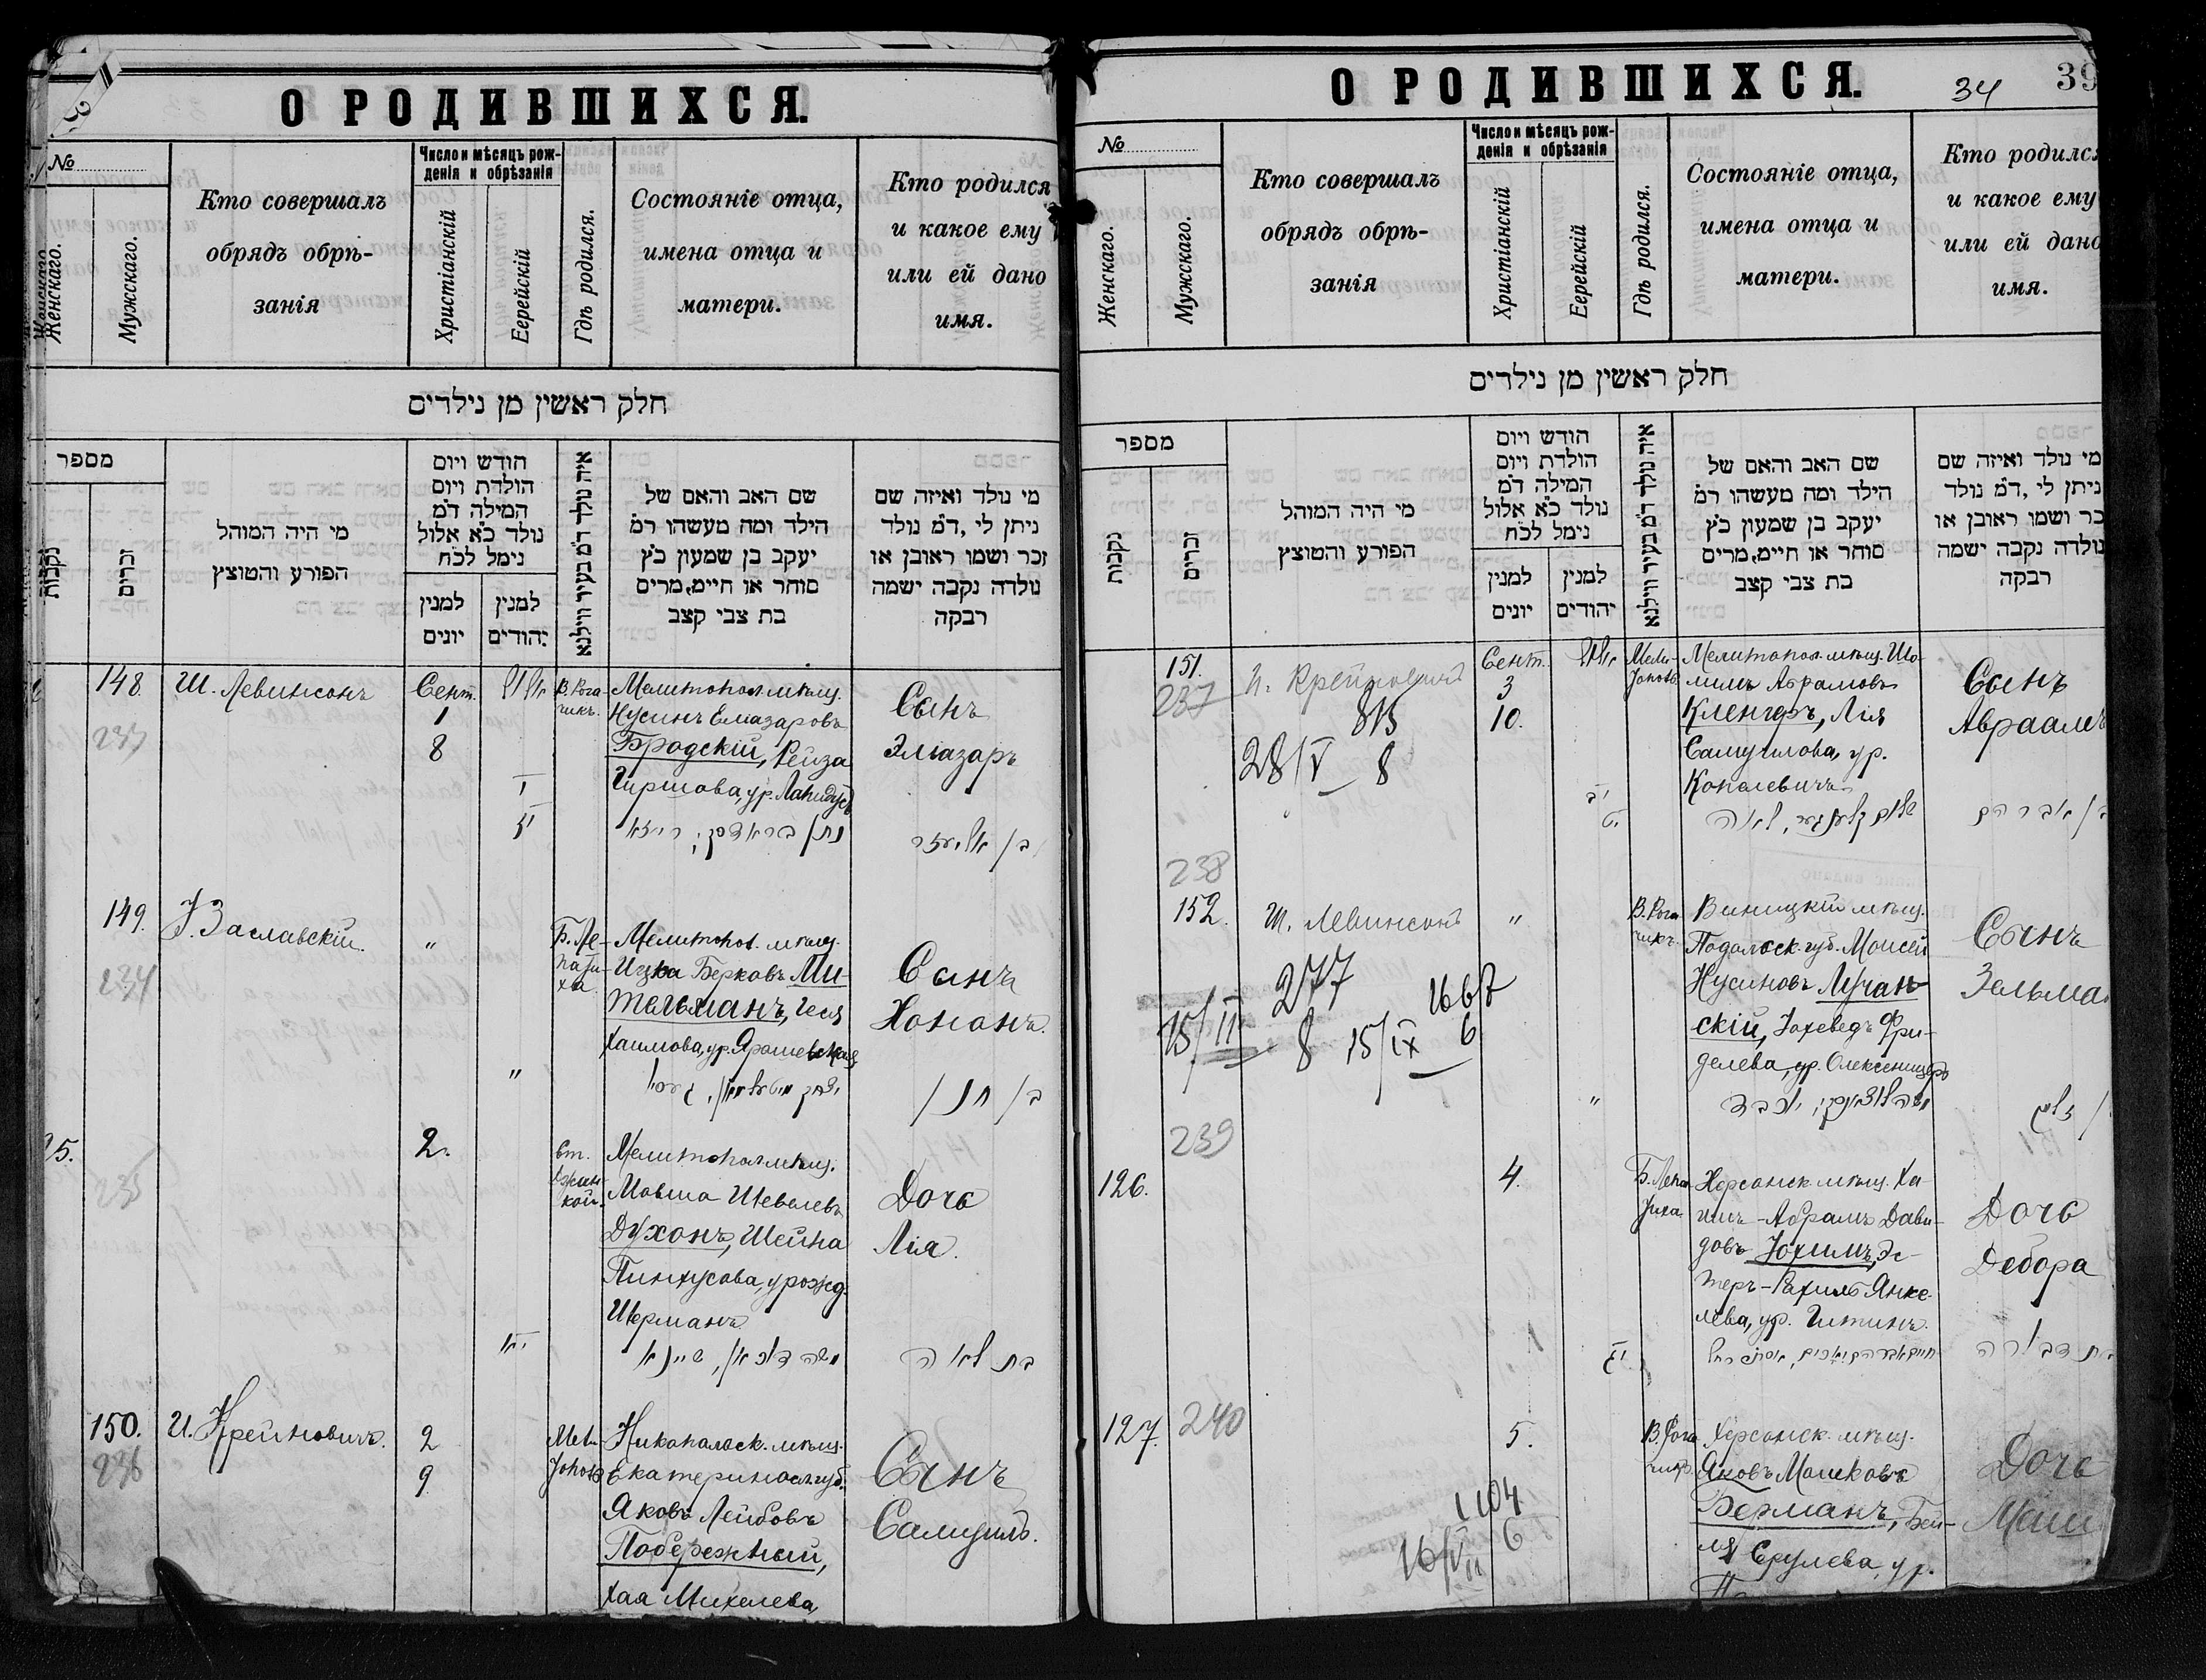 О РОДИВШИХСЯ.
№
Женскаго.
Мужскаго.
Кто совершалъ
обрядъ обрѣ-
занія
Число и мѣсяцъ рож-
денія и обрѣзанія
Христіанскій
Еерейскій
Гдѣ родился.
Состояніе отца,
имена отца и
матери.
Кто родился
и какое ему
или ей дано
имя.
חלק ראשין מן נילדים
מספר
נקבות
זכרים
מי היה המוהל
הפורע והטוצץ
חודש ויום
הולדת ויום
המילה ד״מ
נולד כ״א אלול
נימל לכ״ח
למנין
יונים
למנין
יהודים
איה נולד ד״מ בעיר ווילנא
שם האב והאם של
הילד ומה מעשהו ר״מ
יעקב בן שמעון כ״ץ
סוחר או חיים, מרים
בת צבי קצב
מי נולד ואיזה שם
ניתן לי, ד״מ נולד
זכר ושמו ראובן או
נולדה נקבה ישמה
רבקה
148.
233
Ш. Левинсонъ
Сент.
1
8
אלול
י
יז
В. Рога-
чикъ.
Мелитопол. мѣщ.
Нусинъ Елiазаровъ
Бродскій, Рейза
Гиршова, ур. Лапидусъ
נתן בראדסקי, רייזא
Сынъ
Эліазаръ
בן אליעזר
149.
234
І. Заславскій.
"
"
Б. Ле-
пати-
ха
Мелитопол. мѣщ.
Ицко Берковъ Ми-
тельманъ, Геся
Хаимова, ур. Ярошевская
יצחק מיטעלמאן, געסי
Сынъ
Хононъ.
בן חנן
25.
235
2.
יא
ст.
Мелитопол. мѣщ.
Мовша Шевелевъ
Духонъ, Шейна
Пинхусова, урожд.
Шерманъ
משה דוכאן, שיינא
Дочь
Лія.
בת לאה
150.
236
И. Крейновичъ.
2
9
Мели-
тополь
Никопольск. мѣщ.
Екатериносл. губ.
Яковъ Лейбовъ
Побережный,
Хая Михелева,
Сынъ
Самуилъ.
О РОДИВШИХСЯ.
34
39
№
Женскаго.
Мужскаго.
Кто совершалъ
обрядъ обрѣ-
занія
Число и мѣсяцъ рож-
денія и обрѣзанія
Христіанскій
Еерейскій
Гдѣ родился.
Состояніе отца,
имена отца и
матери.
Кто родился
и какое ему
или ей дано
имя.
חלק ראשין מן נילדים
מספר
נקבות
זכרים
מי היה המוהל
הפורע והטוצץ
חודש ויום
הולדת ויום
המילה ד״מ
נולד כ״א אלול
נימל לכ״ח
למנין
יונים
למנין
יהודים
איה נולד ד״מ בעיר ווילנא
שם האב והאם של
הילד ומה מעשהו ר״מ
יעקב בן שמעון כ״ץ
סוחר או חיים, מרים
בת צבי קצב
מי נולד ואיזה שם
ניתן לי, ד״מ נולד
זכר ושמו ראובן או
נולדה נקבה ישמה
רבקה
151.
237
И. Крейновичъ
815
28/V 8
Сент.
3
10.
אלול
יב
יט
Мели-
тополь
Мелитопол. мѣщ. Шо-
лимъ Абрамовъ
Кленгеръ, Лія
Самуилова, ур.
Копелевичъ
שלום קלענגער, לאה
Сынъ
Авраамъ
בן אברהם
238
152.
Ш. Левинсонъ
277
15/II 8
1667
15/IX 6
"
"
В. Рога
чикъ.
Виницкій мѣщ.
Подольск. губ. Моисей
Нусиновъ Лучан-
скій, Іохеведъ Фри-
делева, ур. Олексеницеръ
משה לוצאנסקי, יוכבד
Сынъ
Зельма
זלמן
239
126.
4.
יג
Б. Лепа
тиха
Херсонск. мѣщ. Ха-
имъ-Абрамъ Дави-
довъ Іохимъ, Эс-
теръ-Рахиль Янке-
лева, ур. Гитинъ.
חיים אברהם יאכים, אסתר רחל
Дочь
Дебора
בת דבורה
127.
240
1104
16/VII 6
5.
В. Рога
чикъ.
Херсонск. мѣщ.
Яковъ Мошковъ
Берманъ, Бей-
ля Срулева, ур.
Дочь